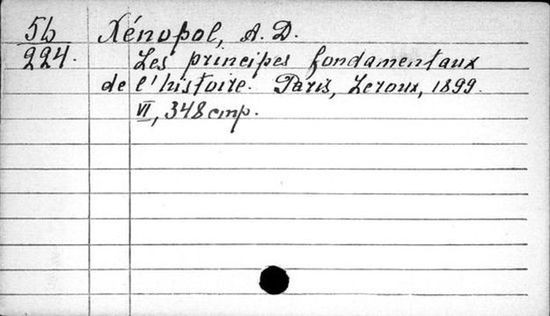 56 Xénopol, A. D.
224. Les principes fondamentaux
de l'histoire. Paris, Leroux, 1899.
VI, 348 стр.